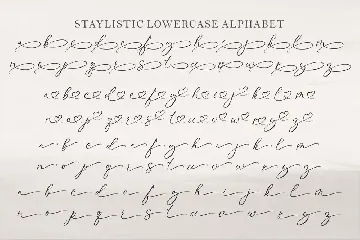 STAYLISTIC LOWERCASE ALPHABET
a b c d e f g h i j k l m
n o p q r s t u v w x y z
a b c d e f g h i j k l m
n o p q r s t u v w x y z
a b c d e f g h i j k l m
n o p q r s t u v w x y z
a b c d e f g h i j k l m
n o p q r s t u v w x y z